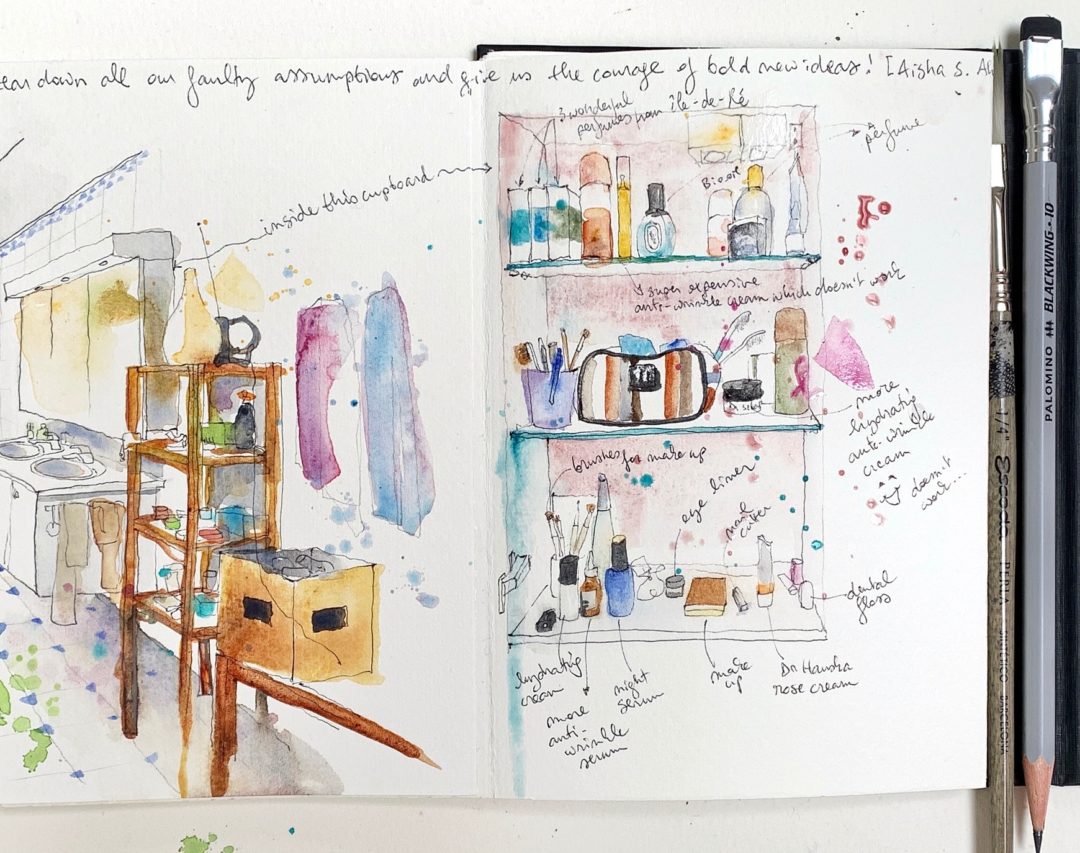 down all our faulty assumptions and give us the courage of bold new ideas! [Aisha S.
3 wonderful
perfumes from Île-de-Ré
perfume
inside this cupboard
Biooil
super expensive
anti-wrinkle cream which doesn't work
more
hydrating
anti-wrinkle
cream
doesn't
work...
brushes for make up
eye liner
nail
cutter
dental
floss
hydrating
cream
more
anti-
wrinkle
serum
night
serum
make
up
Dr Hauska
rose cream
PALOMINO BLACKWING-10
Escoda PERLA